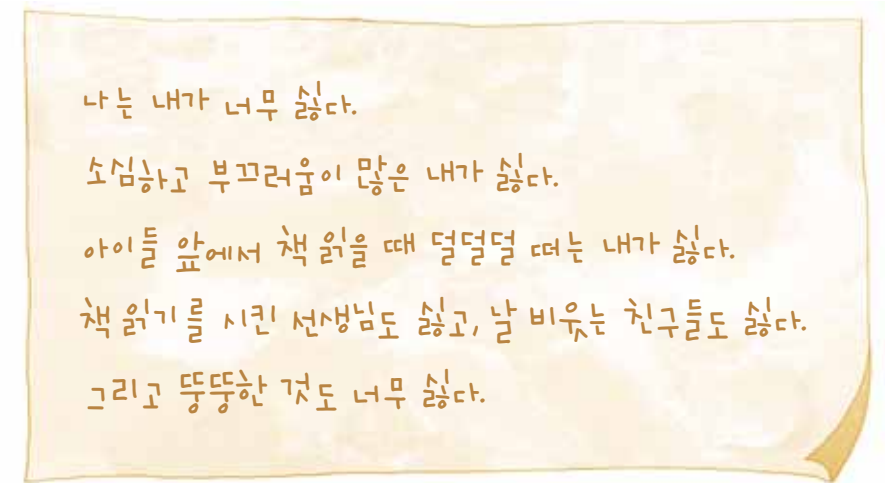 나는 내가 너무 싫다.
소심하고 부끄러움이 많은 내가 싫다.
아이들 앞에서 책 읽을 때 덜덜덜 떠는 내가 싫다.
책 읽기를 시킨 선생님도 싫고, 날 비웃는 친구들도 싫다.
그리고 뚱뚱한 것도 너무 싫다.